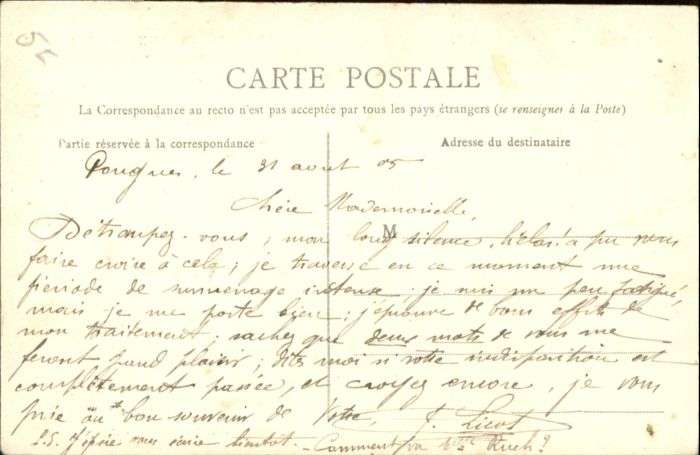 CARTE POSTALE
La Correspondance au recto n'est pas acceptée par tous les pays étrangers (se renseigner à la Poste)
Partie réservée à la correspondance
Adresse du destinataire
Pougues, le 31 aout 05
Chère Mademoiselle,
M
Détrompez-vous, mon long silence, hélas! a pu vous
faire croire à cela; je traverse en ce moment une
période de surmenage intense. je suis un peu fatigué,
mais je me porte bien; j'éprouve de bons effets de
mon traitement; sachez que deux mots de vous me
feront grand plaisir; dites moi si votre indisposition est
complètement passée, et croyez encore, je vous
prie au bon souvenir de Votre,
P.S. J'espère vous écrire bientôt. - Comment va Mme